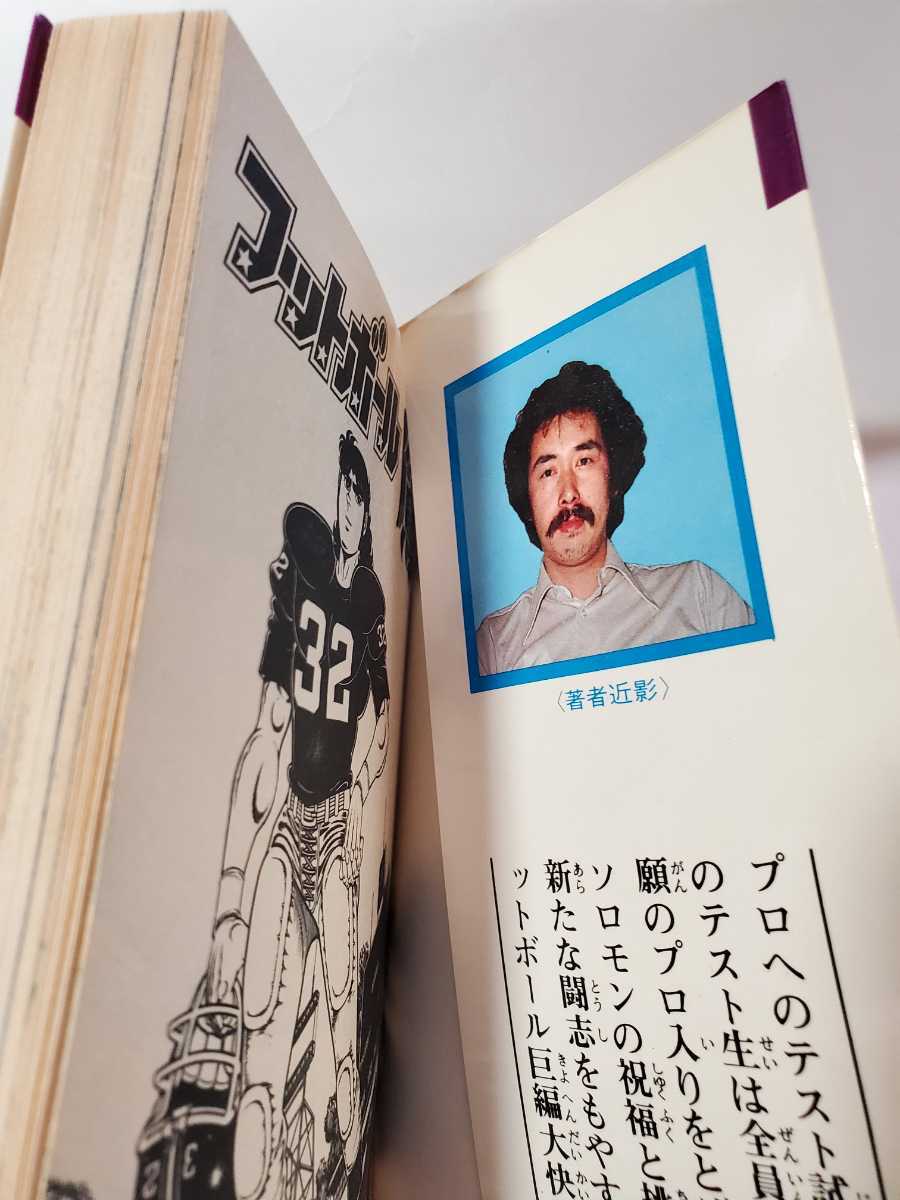 フットボール
32
2
32
32
3
〈著者近影〉
プロへのテスト試
のテスト生は全員
願のプロ入りをと
ソロモンの祝福と挑
新たな闘志をもやす
ットボール巨編大快